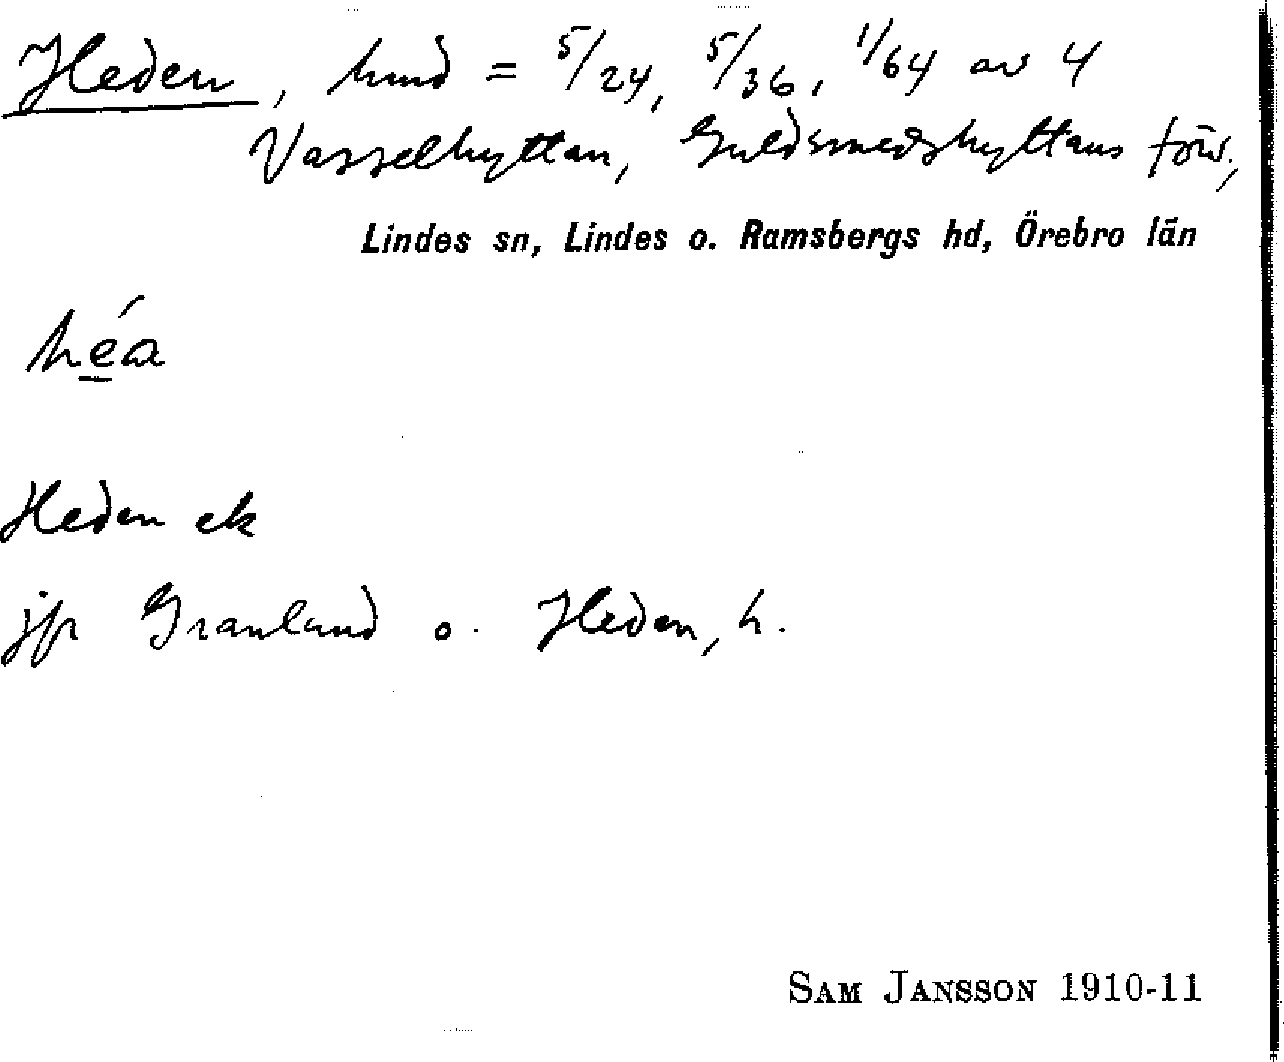 Heden, hmd = 5/24, 5/36, 1/64 av 4
Vasselhyttan, Guldsmedshyttans förs.,
Lindes sn, Lindes o. Ramsbergs hd, Örebro län
héa
Heden ek
jfr Granlund o. Heden, h.
SAM JANSSON 1910-11